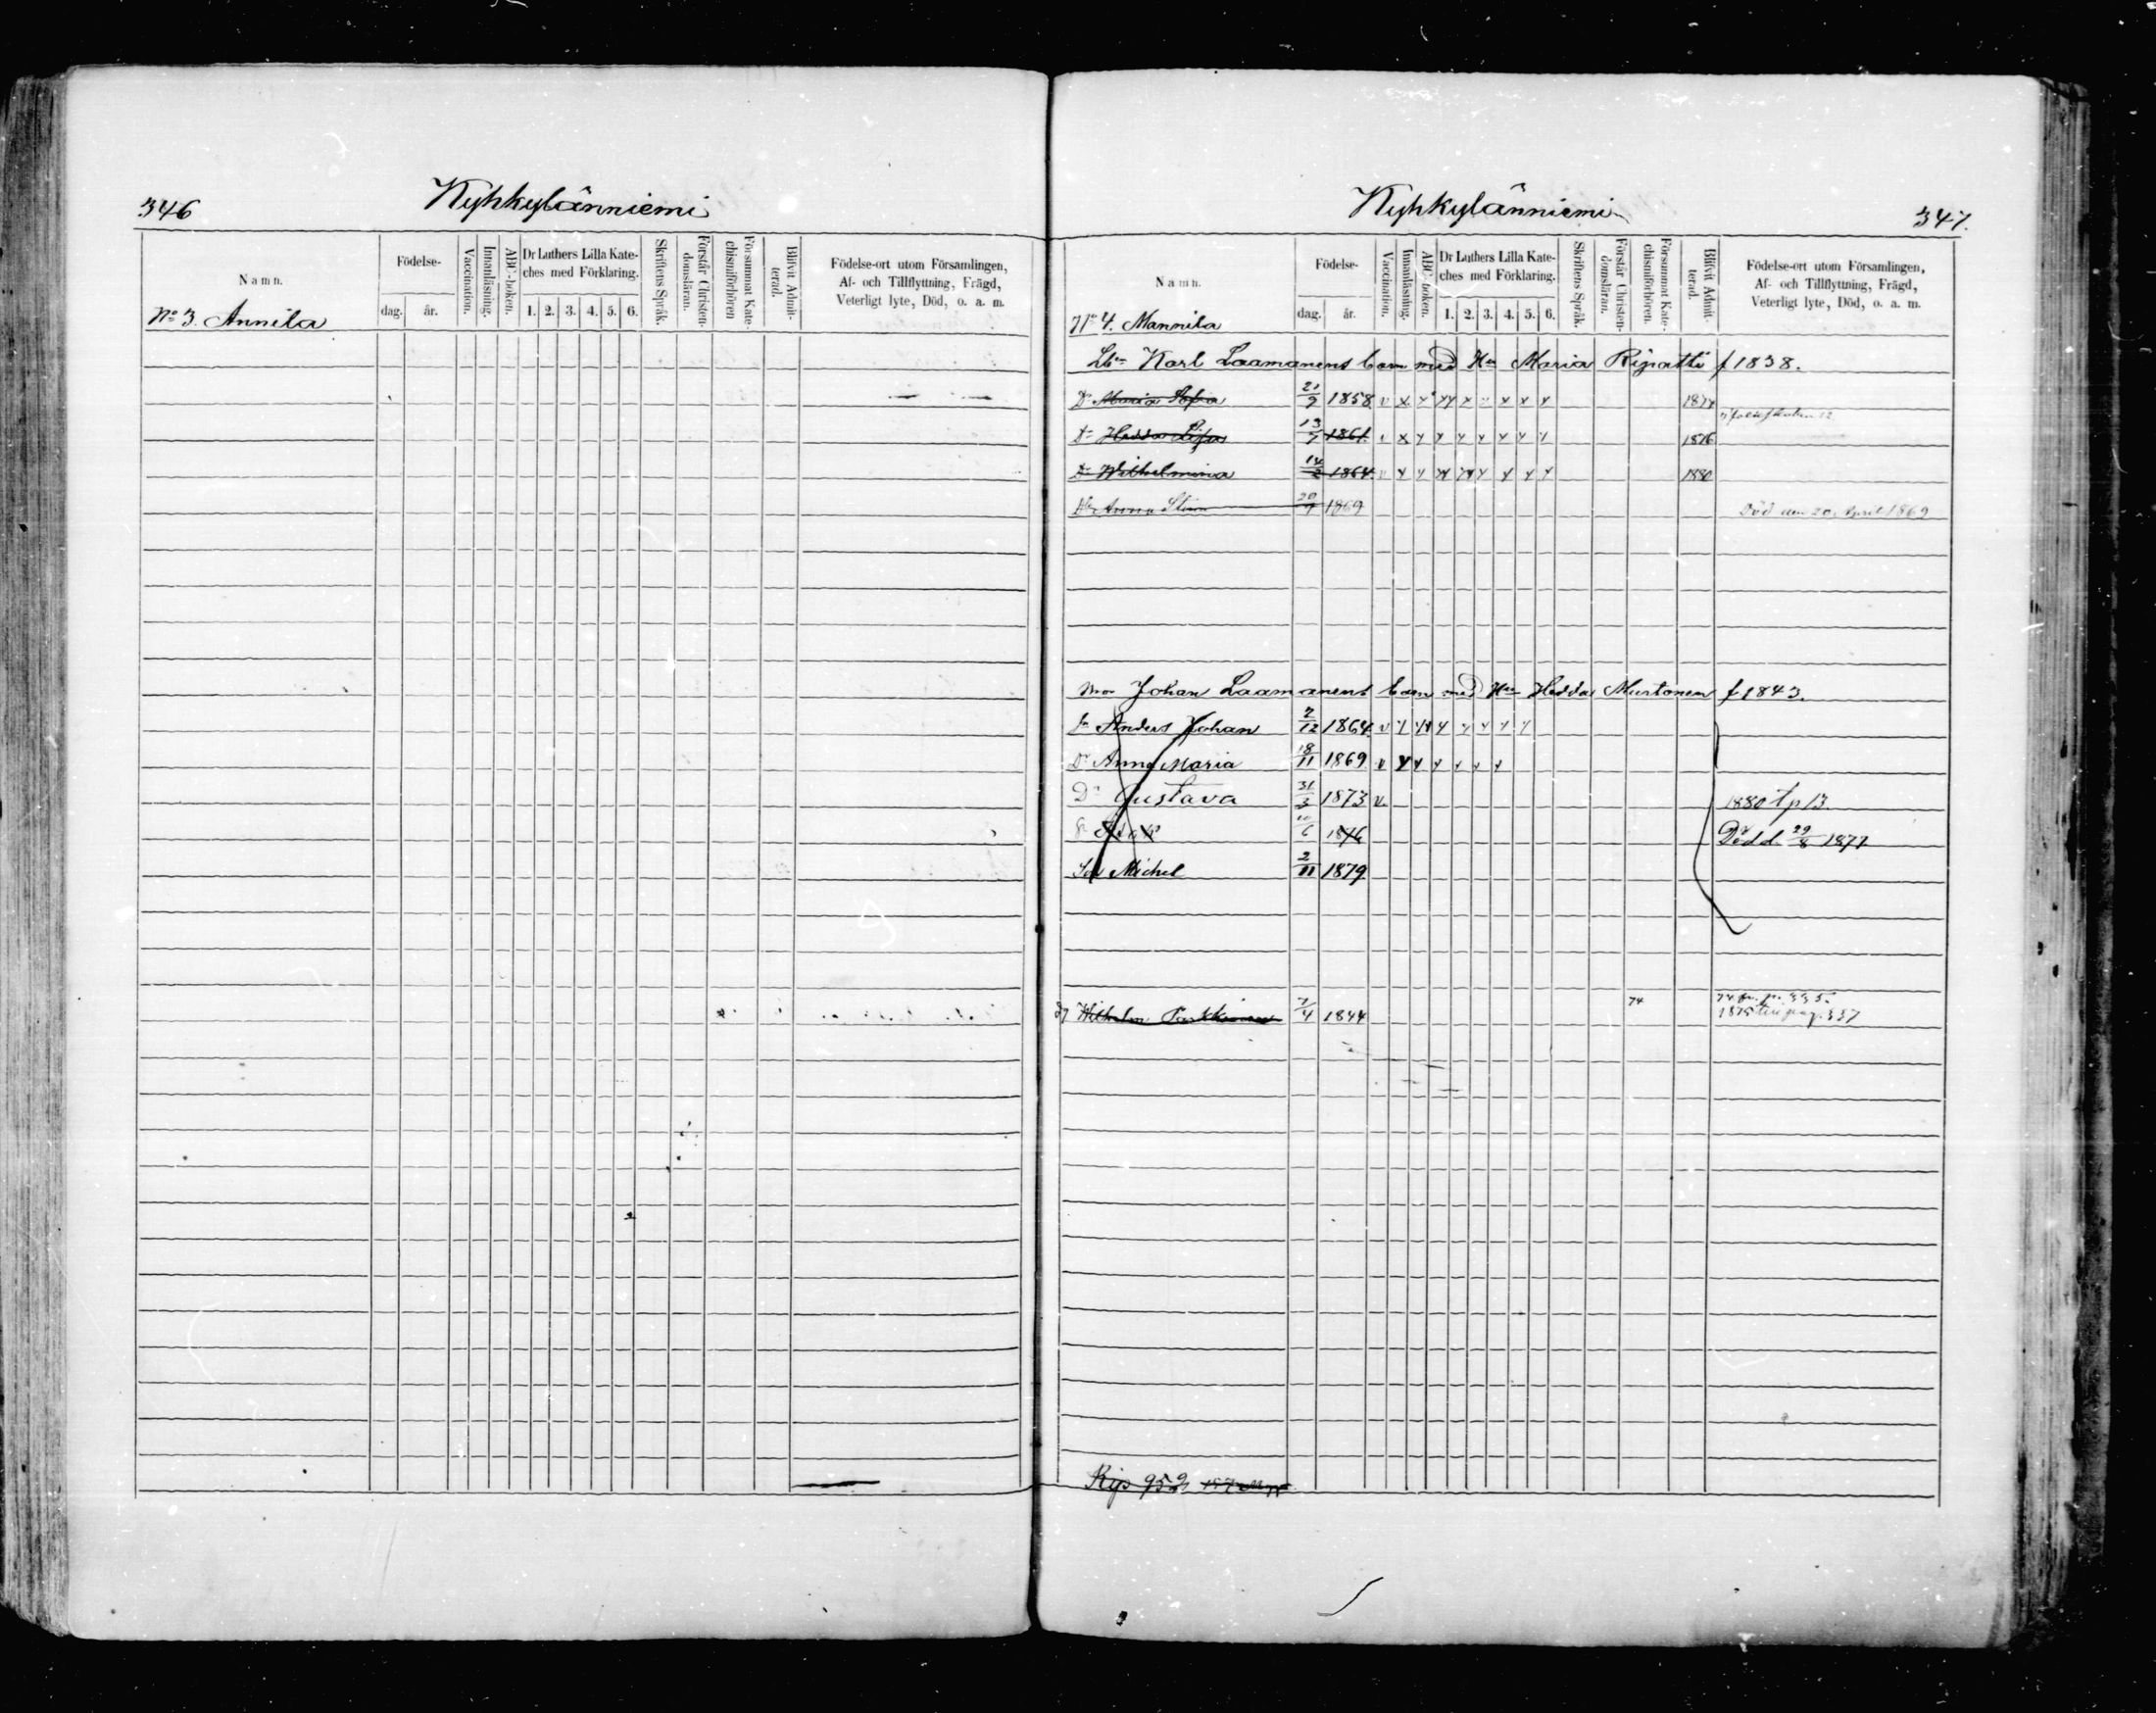 346
Kyhkylänniemi
Namn.
Födelse-
dag.
år.
Vaccination.
Innanläsning.
ABC-boken.
Dr Luthers Lilla Kate-
ches med Förklaring.
1. 2. 3. 4. 5. 6.
Skriftens Språk.
Förstår Christen-
domsläran.
Försummat Kate-
chismiförhören
Blifvit Admit-
terad.
Födelse-ort utom Församlingen,
Af- och Tillflyttning, Frägd,
Veterligt lyte, Död, o. a. m.
No 3. Annila
Kyhkylänniemi
347.
Namn.
Födelse-
dag.
år.
Vaccination.
Innanläsning.
ABC-boken.
Dr Luthers Lilla Kate-
ches med Förklaring.
1. 2. 3. 4. 5. 6.
Skriftens Språk.
Förstår Christen-
domsläran.
Försummat Kate-
chismiförhören.
Blifvit Admit-
terad.
Födelse-ort utom Församlingen,
Af- och Tillflyttning, Frägd,
Veterligt lyte, Död, o. a. m.
No 4. Mannila
Karl Laamanens barn med Hu Maria Ripatti f 1838.
Dr Maria Sofia 21/9 1858 v x x xx x x x x 1874
Dr Hedda Lisa 13/7 1861 v x x x x x x x x 1876
Dr Wilhelmina 14/2 1864 v x x x x x x x x 1880
Dr Anna Stina 1869 Död den 20 April 1869
Johan Laamanens barn med Hu Hedda Mustonen f 1843.
Sn Anders Johan 2/12 1864
Dr Anna Maria 18/11 1869
Dr Gustava 31/3 1873 v. 1880 tp 13
10/6 1876 Död d 29/8 1877
Son Michel 2/11 1879
Wilhelm 7/4 1844 74 335.
1875 pag. 337
Rip 95